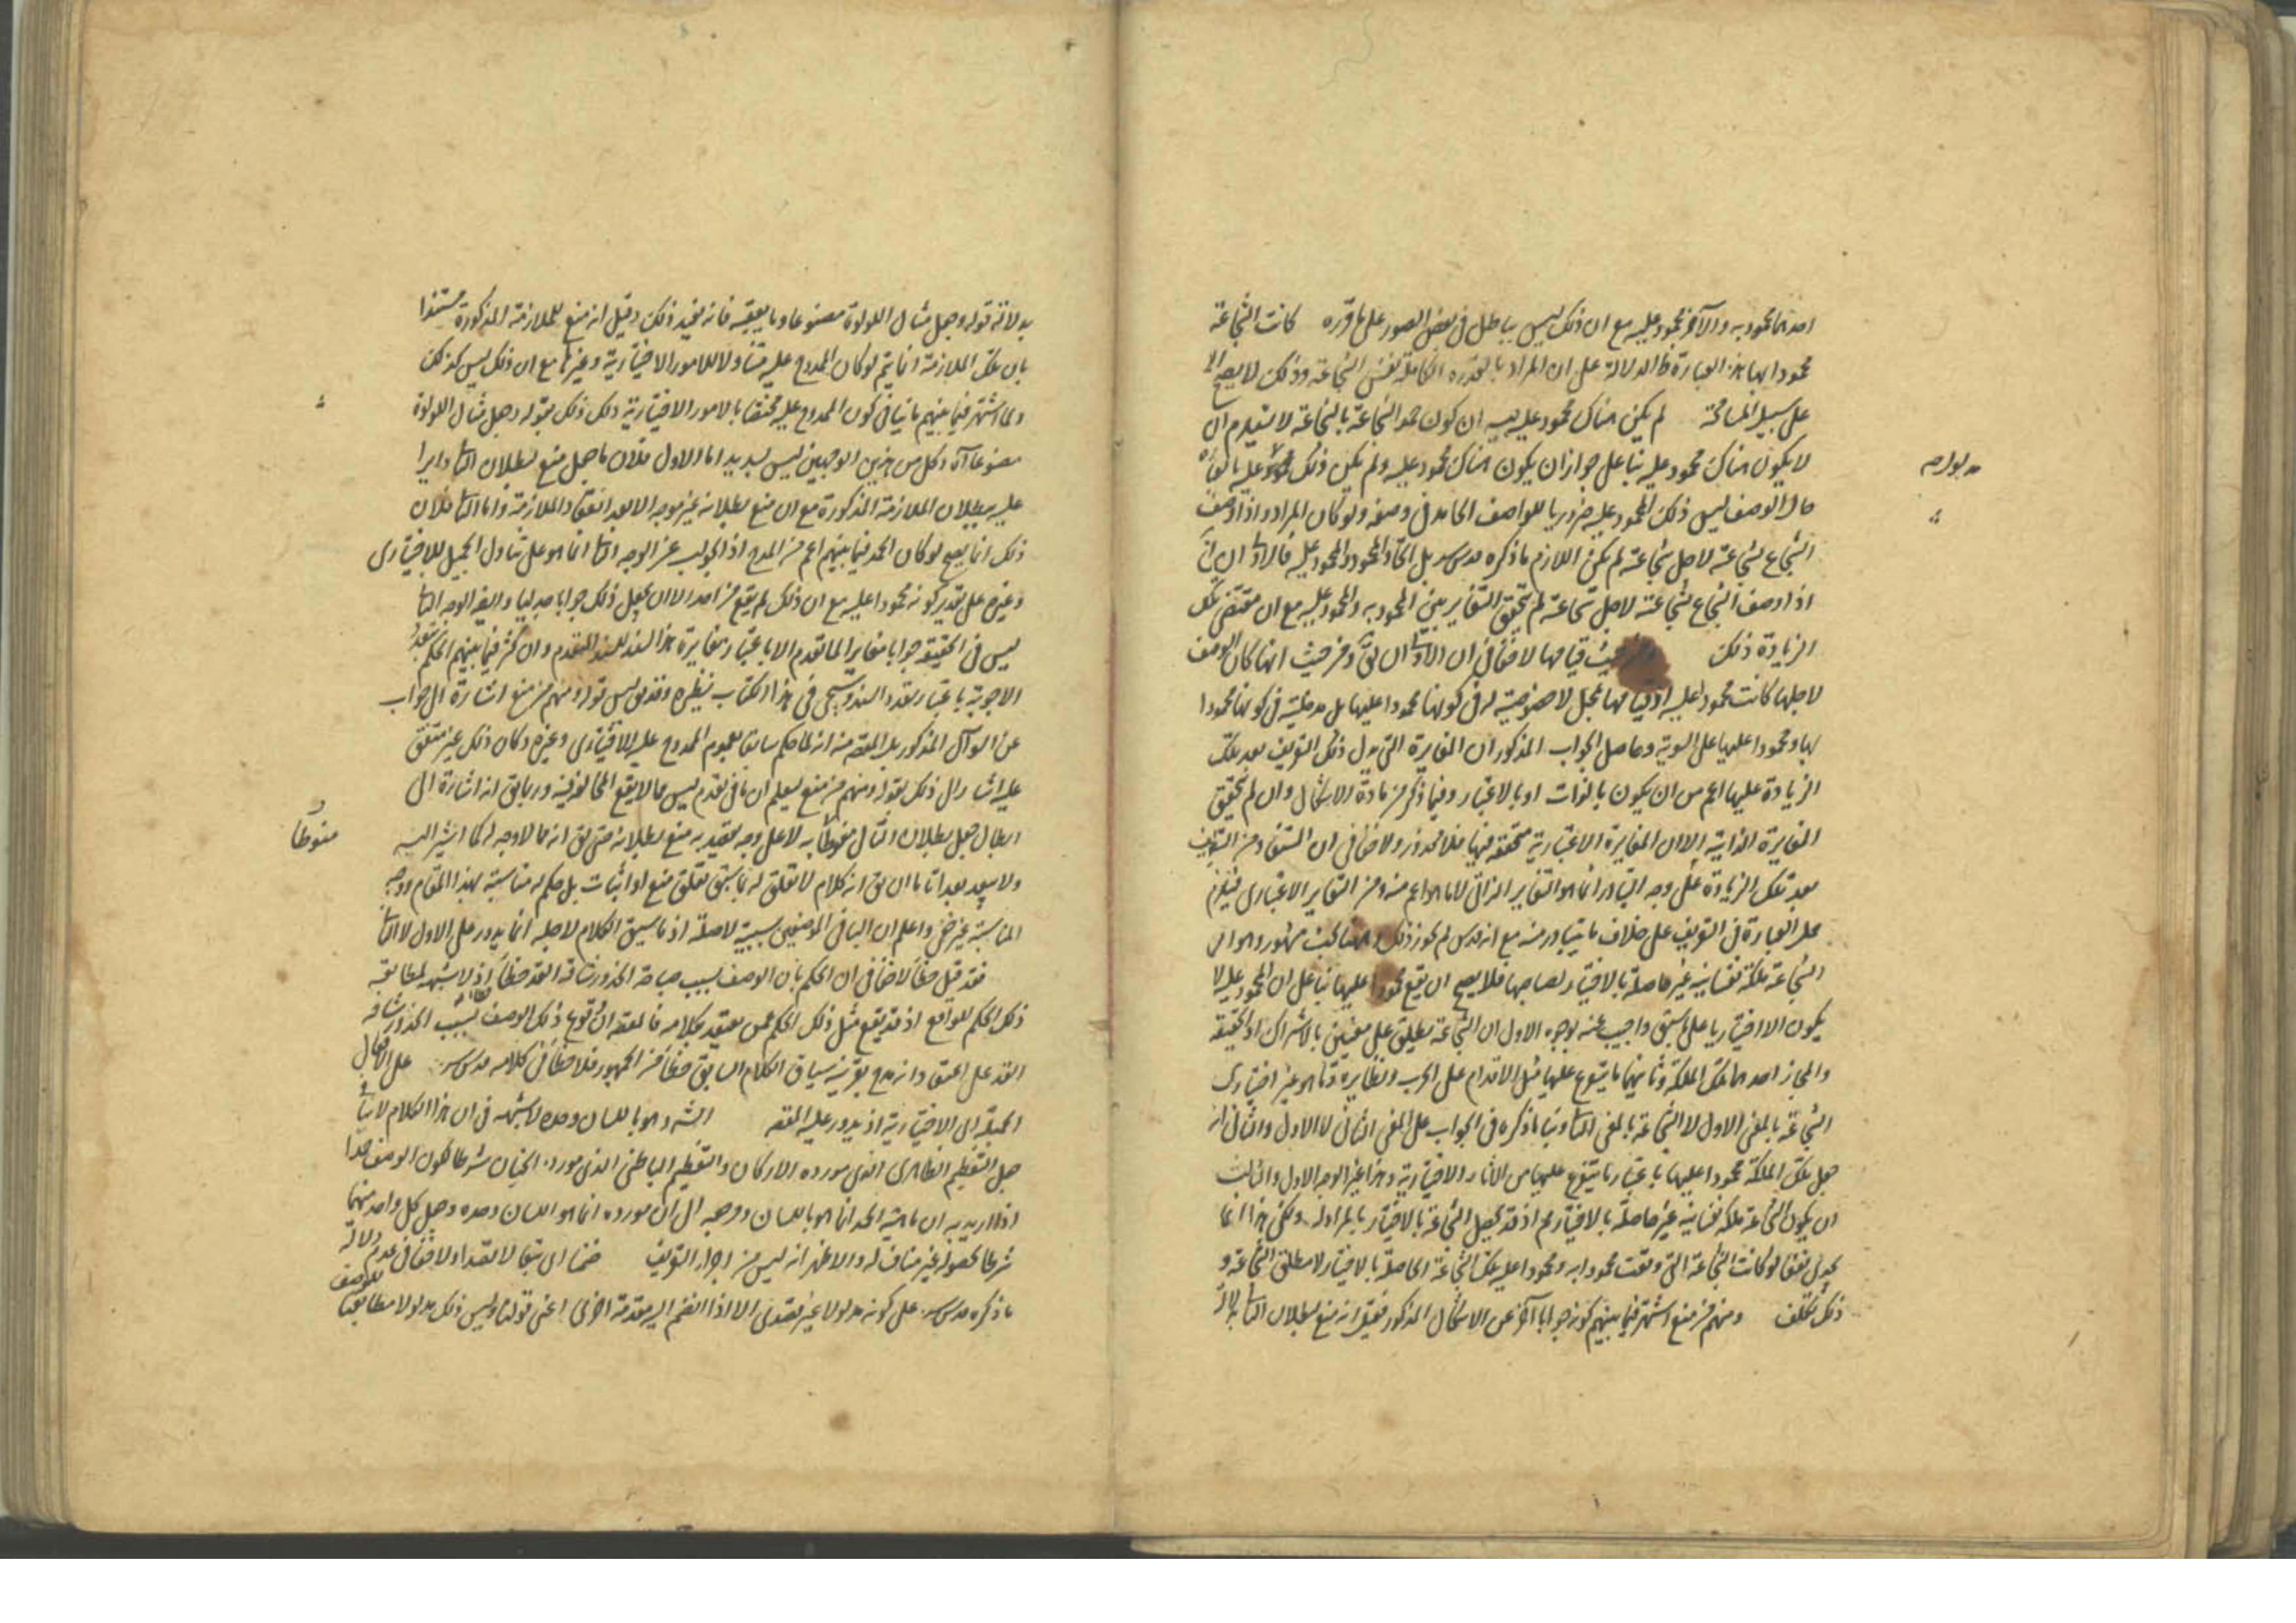 احدهما محمود به والآخر محمود عليه مع ان ذلك ليس بباطل فى بعض الصور على ما قرره كانت الشجاعة
محمودا بها هذه العبارة ظ الدلالة على ان المراد بالقدرة الكاملة نفس الشجاعة وذلك لا يصح الا
على سبيل المسامحة لم يكن هناك محمود عليه ان كون حمد الشجاعة بالشجاعة لا يستلزم ان
لا يكون هناك محمود عليه بناء على جواز ان يكون هناك محمود عليه ولم يكن ذلك
حال الوصف ليس ذلك المحمود عليه ضروريا للواصف الحامد فى وصفه ولو كان المراد واذا وصف
الشجاع بشجاعته لاجل شجاعته لم يكن اللازم ما ذكره قدس سره بل اتحاد المحمود به والمحمود عليه فالاولى ان يق
اذا وصف الشجاع بشجاعته لاجل شجاعته لم يتحقق التغاير بين المحمود به والمحمود عليه مع ان مقتضى تلك
الزيادة ذلك حيث قيامها لا خفاء فى ان الاولى ان يق ومن حيث انها كان الوصف
لاجلها كانت محمودا عليها اذ قيامها بمحل لا خصوصية له فى كونها محمودا عليها بل مدخليته فى كونها محمودا
بها ومحمودا عليها على السوية وحاصل الجواب المذكور ان المغايرة التى يدل ذلك التعريف بعد تلك
الزيادة عليها اعم من ان يكون بالذات او بالاعتبار وفيما ذكر من مادة الاشكال وان لم يتحقق
المغايرة الذاتية الا ان المغايرة الاعتبارية متحققة فيها فلا محذور ولا خفاء فى ان المستفاد من التعريف
بعد تلك الزيادة على وجه التبادر انما هو التغاير الذاتى لا ما هو اعم منه ومن التغاير الاعتبارى فيلزم
حمل العبارة فى التعريف على خلاف ما يتبادر منه مع انه قدس سره لم يجوز ذلك وههنا بحث مشهور وهو ان
الشجاعة ملكة نفسانية غير حاصلة بالاختيار لصاحبها فلا يصح ان يقع محمودا عليها بناء على ان المحمود عليه لا
يكون الا اختياريا على ما سبق واجيب عنه بوجوه الاول ان الشجاعة يطلق على معنيين بالاشتراك او الحقيقة
والمجاز احدهما تلك الملكة وثانيهما ما يتفرع عليها مثل الاقدام على الحرب ونظايره وما هو غير اختيارى
الشجاعة بالمعنى الاول لا الشجاعة بالمعنى الثانى وبناء ما ذكره فى الجواب على المعنى الثانى لا الاول والثانى انه
جعل تلك الملكة محمودا عليها باعتبار ما يتفرع عليها من الآثار الاختيارية وهذا غير الوجه الاول والثالث
ان يكون الشجاعة ملكة نفسانية غير حاصلة بالاختيار مم اذ قد يحصل الشجاعة بالاختيار بالمزاولة ولكن هذا انما
يجدى نفعا لو كانت الشجاعة التى وقعت محمودا به ومحمودا عليه تلك الشجاعة الحاصلة بالاختيار لا مطلق الشجاعة و
ذلك تكلف ومنهم من منع اشتهر فيما بينهم كونه جوابا آخر عن الاشكال المذكور فقيل انه منع لبطلان التالى بدلالة
بدلالة قوله وجعل مثال اللؤلؤة مصنوعا وما يعقبه فانه يفيد ذلك وقيل انه منع للملازمة المذكورة مستندا
بان تلك الملازمة انما يتم لو كان الممدوح عليه متناولا للامور الاختيارية وغيرها مع ان ذلك ليس كذلك
ولما اشتهر فيما بينهم ما ينافى كون الممدوح عليه مختصا بالامور الاختيارية دفع ذلك بقوله وجعل مثال اللؤلؤة
مصنوعا آه وكل من هذين الوجهين ليس بسديد اما الاول فلان ما جعل منع لبطلان التالى دايرا
عليه بطلان الملازمة المذكورة مع ان منع بطلانه غير موجه الا بعد انعقاد الملازمة واما الثانى فلان
ذلك انما يصح لو كان الحمد فيما بينهم اعم من المدح اذ الجواب عن الوجه الثانى انما هو على تناول الجميل للاختيارى
وغيره على تقدير كونه محمودا عليه مع ان ذلك لم يقع من احد الا ان يجعل ذلك جوابا جدليا وايضا الوجه الثانى
ليس فى الحقيقة جوابا مغايرا لما تقدم الا باعتبار مغايرة هذا السند للسند المتقدم وان كثر فيما بينهم الحكم بتعدد
الاجوبة باعتبار تعدد السند وسيجئ فى هذا الكتاب نظيره وقد يق ليس قوله ومنهم من منع اشارة الى جواب
عن السؤال المذكور بل المقصود منه انه لما حكم سابقا بعموم الممدوح عليه للاختيارى وغيره وكان ذلك غير متفق
عليه اشار الى ذلك بقوله ومنهم من منع ليعلم ان ما فى تقدم ليس مما لا يقع المخالفة فيه وربما يق انه اشارة الى
ابطال جعل بطلان التالى منوطا به لا على وجه يقصد به منع بطلانه حتى يق انه مما لا وجه له كما اشير اليه
ولا يبعد بعد اتاما ان يق انه كلام لا تعلق له بما سبق تعلق منع او اثبات بل حكم له مناسبة بهذا المقام ووجه
المناسبة غير خفى واعلم ان الباء فى الموضعين سببية لا صلة اذ ما سيق الكلام لاجله انما يدور على الاول لا الثانى
فقد قيل خطأ لا خفاء فى ان الحكم بان الوصف بسبب صباحة الخد ورشاقة القد خطأ اذ لا شبهة لمطابقة
ذلك الحكم للواقع اذ قد يقع مثل ذلك الحكم ممن يعتقد بكلامه فالمقصود ان وقوع ذلك الوصف بسبب الخد ورشاقة
القد على اعتقاد انه مدح بقرينة سياق الكلام السابق خطأ من الجمهور فلا خطأ فى كلامه قدس سره على الافعال
الجميلة اى الاختيارية اذ يدور عليه المقصود الثناء وهو باللسان وحده لا شبهة فى ان هذا الكلام لا ينافى
جعل التعظيم الظاهرى الذى مورده الاركان والتعظيم الباطنى الذى مورده الجنان شرطا لكون الوصف حمدا
اذا اريد به ان ماهية الحمد انما هو باللسان ومرجعه الى ان مورده انما هو اللسان وحده وجعل كل واحد منهما
شرطا لحصوله غير مناف له والاظهر انه ليس من اجزاء التعريف ضمنا اى تبعا لا قصدا ولا خفاء فى عدم دلالة
ما ذكره قدس سره على كونه مدلولا غير قصدى الا اذا انضم اليه مقدمة اخرى اعنى قولنا وليس ذلك مدلولا مطابقيا للوصف
منوطا